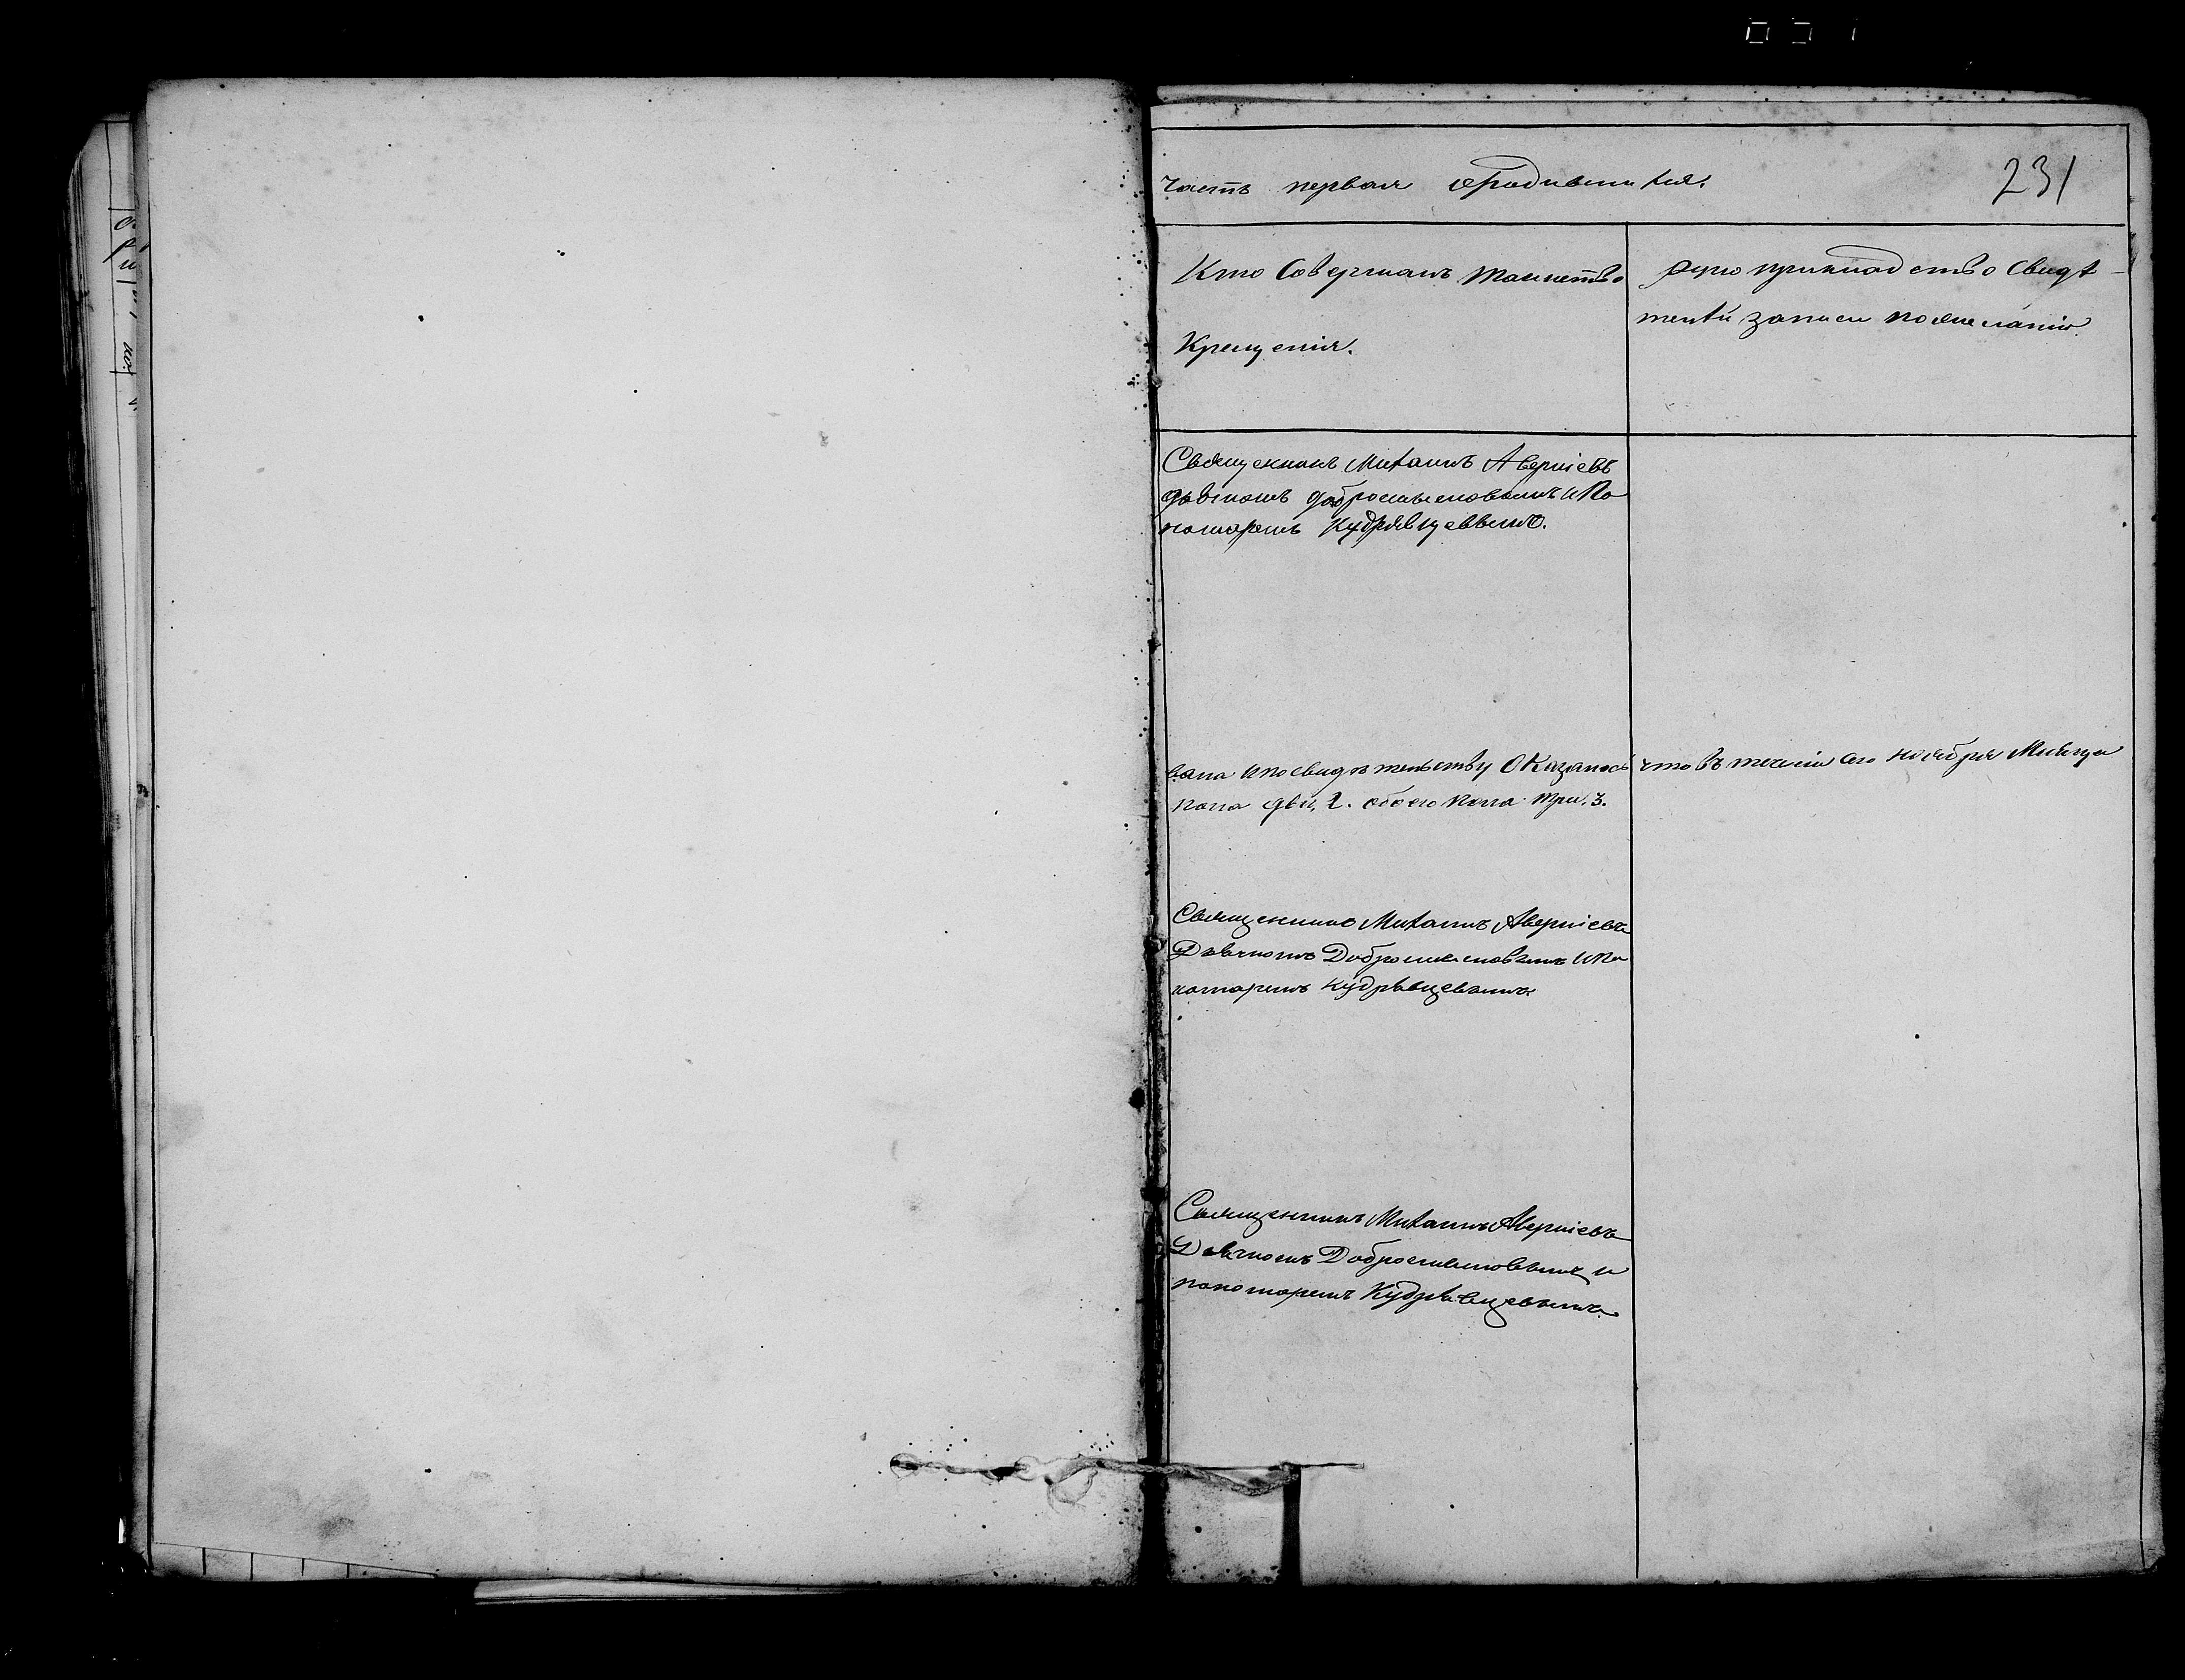 часть первая ородившихся.
231
Кто Совершалъ таинство
Крещенія.
Рукоприкладство Свидѣ-
телей записи по желанію.
Священникъ Михаилъ Аверкіевъ
дьячкомъ добросмысловымъ и По
номаремъ Кудрявцеввымъ.
вана ипосвидѣтельству Оказалось что въ теченіи сего ноября Мѣсяца
пола две, 2. обоего пола три. 3.
Священникъ Михаилъ Аверкіевъ
Дьячкомъ Добросмысловымъ и По
номаремъ Кудрявцевымъ.
Священникъ Михаилъ Аверкіевъ
Дьячкомъ Добросмысловымъ и
пономаремъ Кудрявцевымъ.